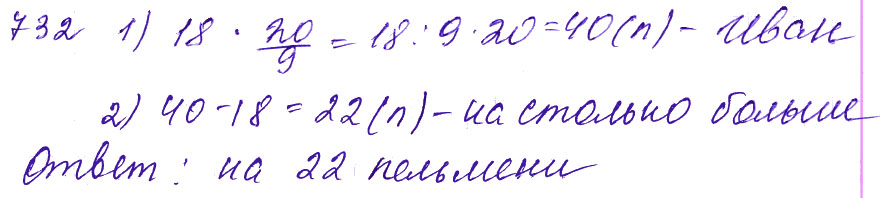 732 1) 18 · 20/9 = 18 : 9 · 20 = 40 (п) - Иван
2) 40 - 18 = 22 (п) - на столько больше
Ответ : на 22 пельмени